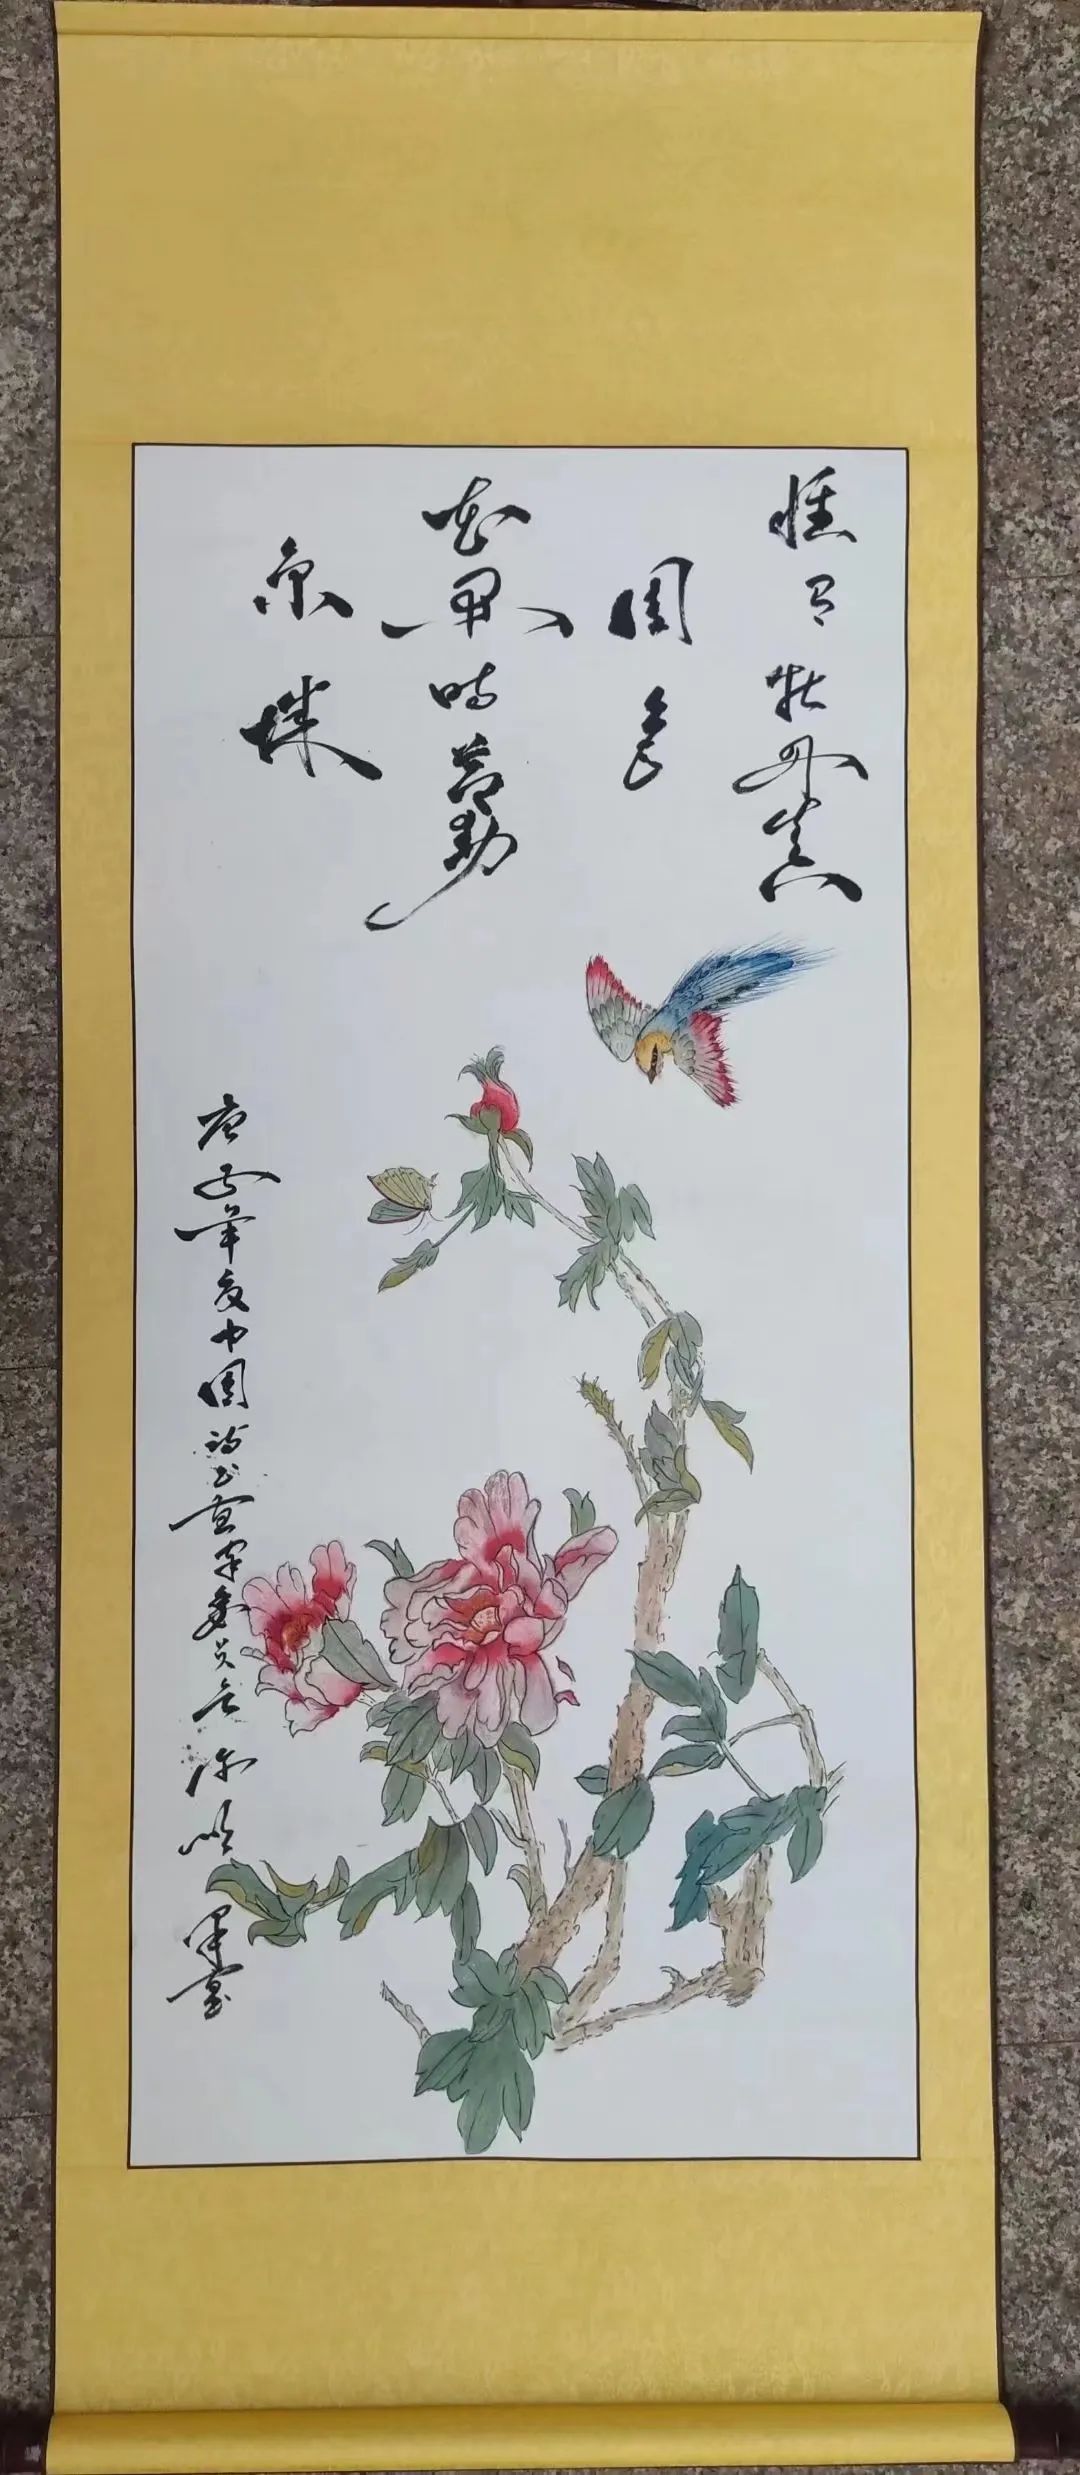 惟有牡丹真
国色
花开时节动
京城
庚子年夏中国诗书画家委员会